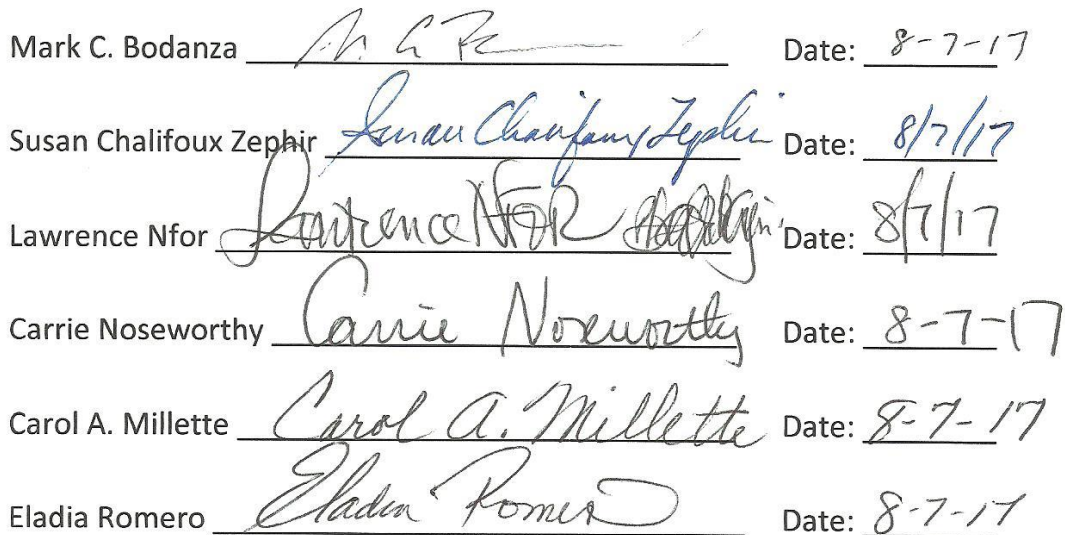 Mark C. Bodanza Date: 8-7-17
Susan Chalifoux Zephir Susan Chalifoux Zephir Date: 8/7/17
Lawrence Nfor Lawrence NFOR Date: 8/7/17
Carrie Noseworthy Carrie Noseworthy Date: 8-7-17
Carol A. Millette Carol A. Millette Date: 8-7-17
Eladia Romero Eladia Romero Date: 8-7-17